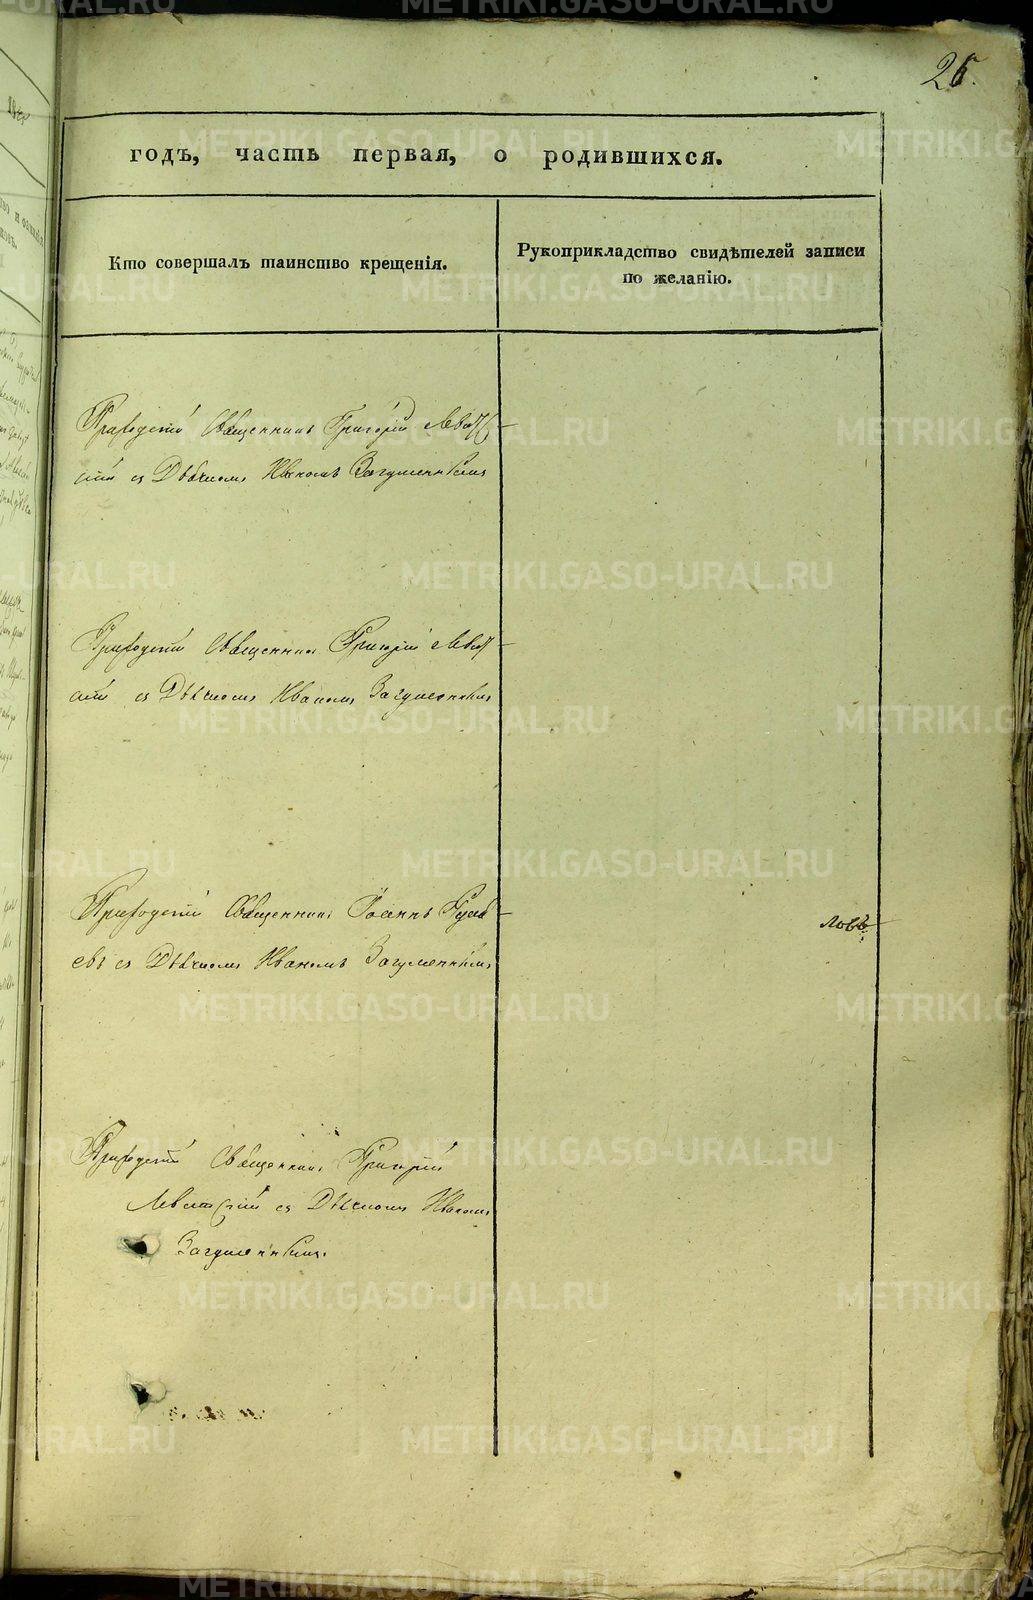 25.
годъ, часть первая, о родившихся.
Кто совершалъ таинство крещенія.
Рукоприкладство свидѣтелей записи
по желанію.
Приходскій Священникъ Григорій Левит-
скій съ Дьячкомъ Иваномъ Загуменныхъ
Приходскій Священникъ Григорій Левит-
скій съ Дьячкомъ Иваномъ Загуменныхъ
Приходскій Священникъ Іоаннъ
евъ съ Дьячкомъ Иваномъ Загуменныхъ
ловъ
Приходскій Священникъ Григорій
Левитскій съ Дьячкомъ Иваномъ
Загуменныхъ.
METRIKI.GASO-URAL.RU